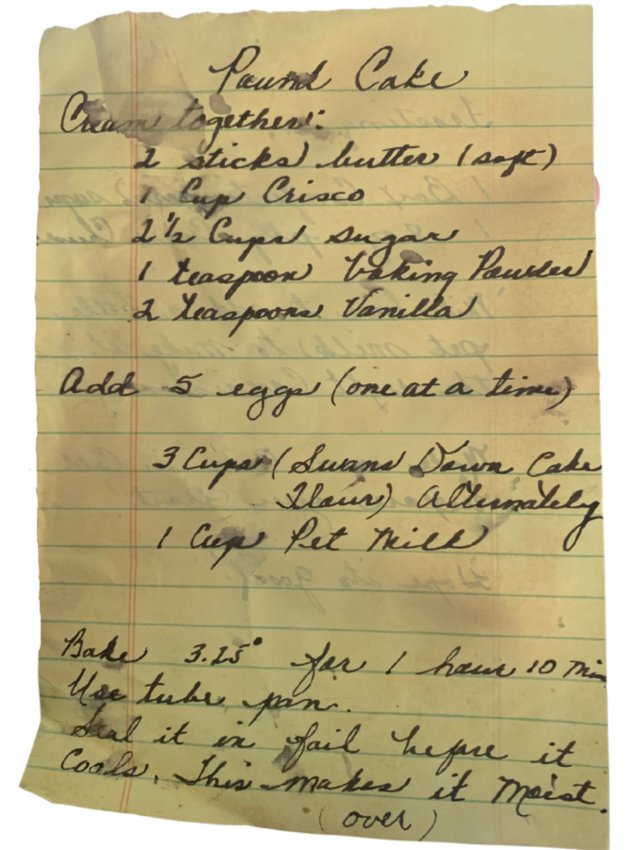 Pound Cake
Cream together:
2 sticks butter (soft)
1 Cup Crisco
2 1/2 Cups sugar
1 teaspoon baking Powder
2 teaspoons Vanilla
Add 5 eggs (one at a time)
3 Cups (Swans Down Cake
Flour) Alternately
1 Cup Pet Milk
Bake 3.25° for 1 hour 10 Min
Use tube pan.
Seal it in foil before it
Cools. This makes it Moist.
(over)